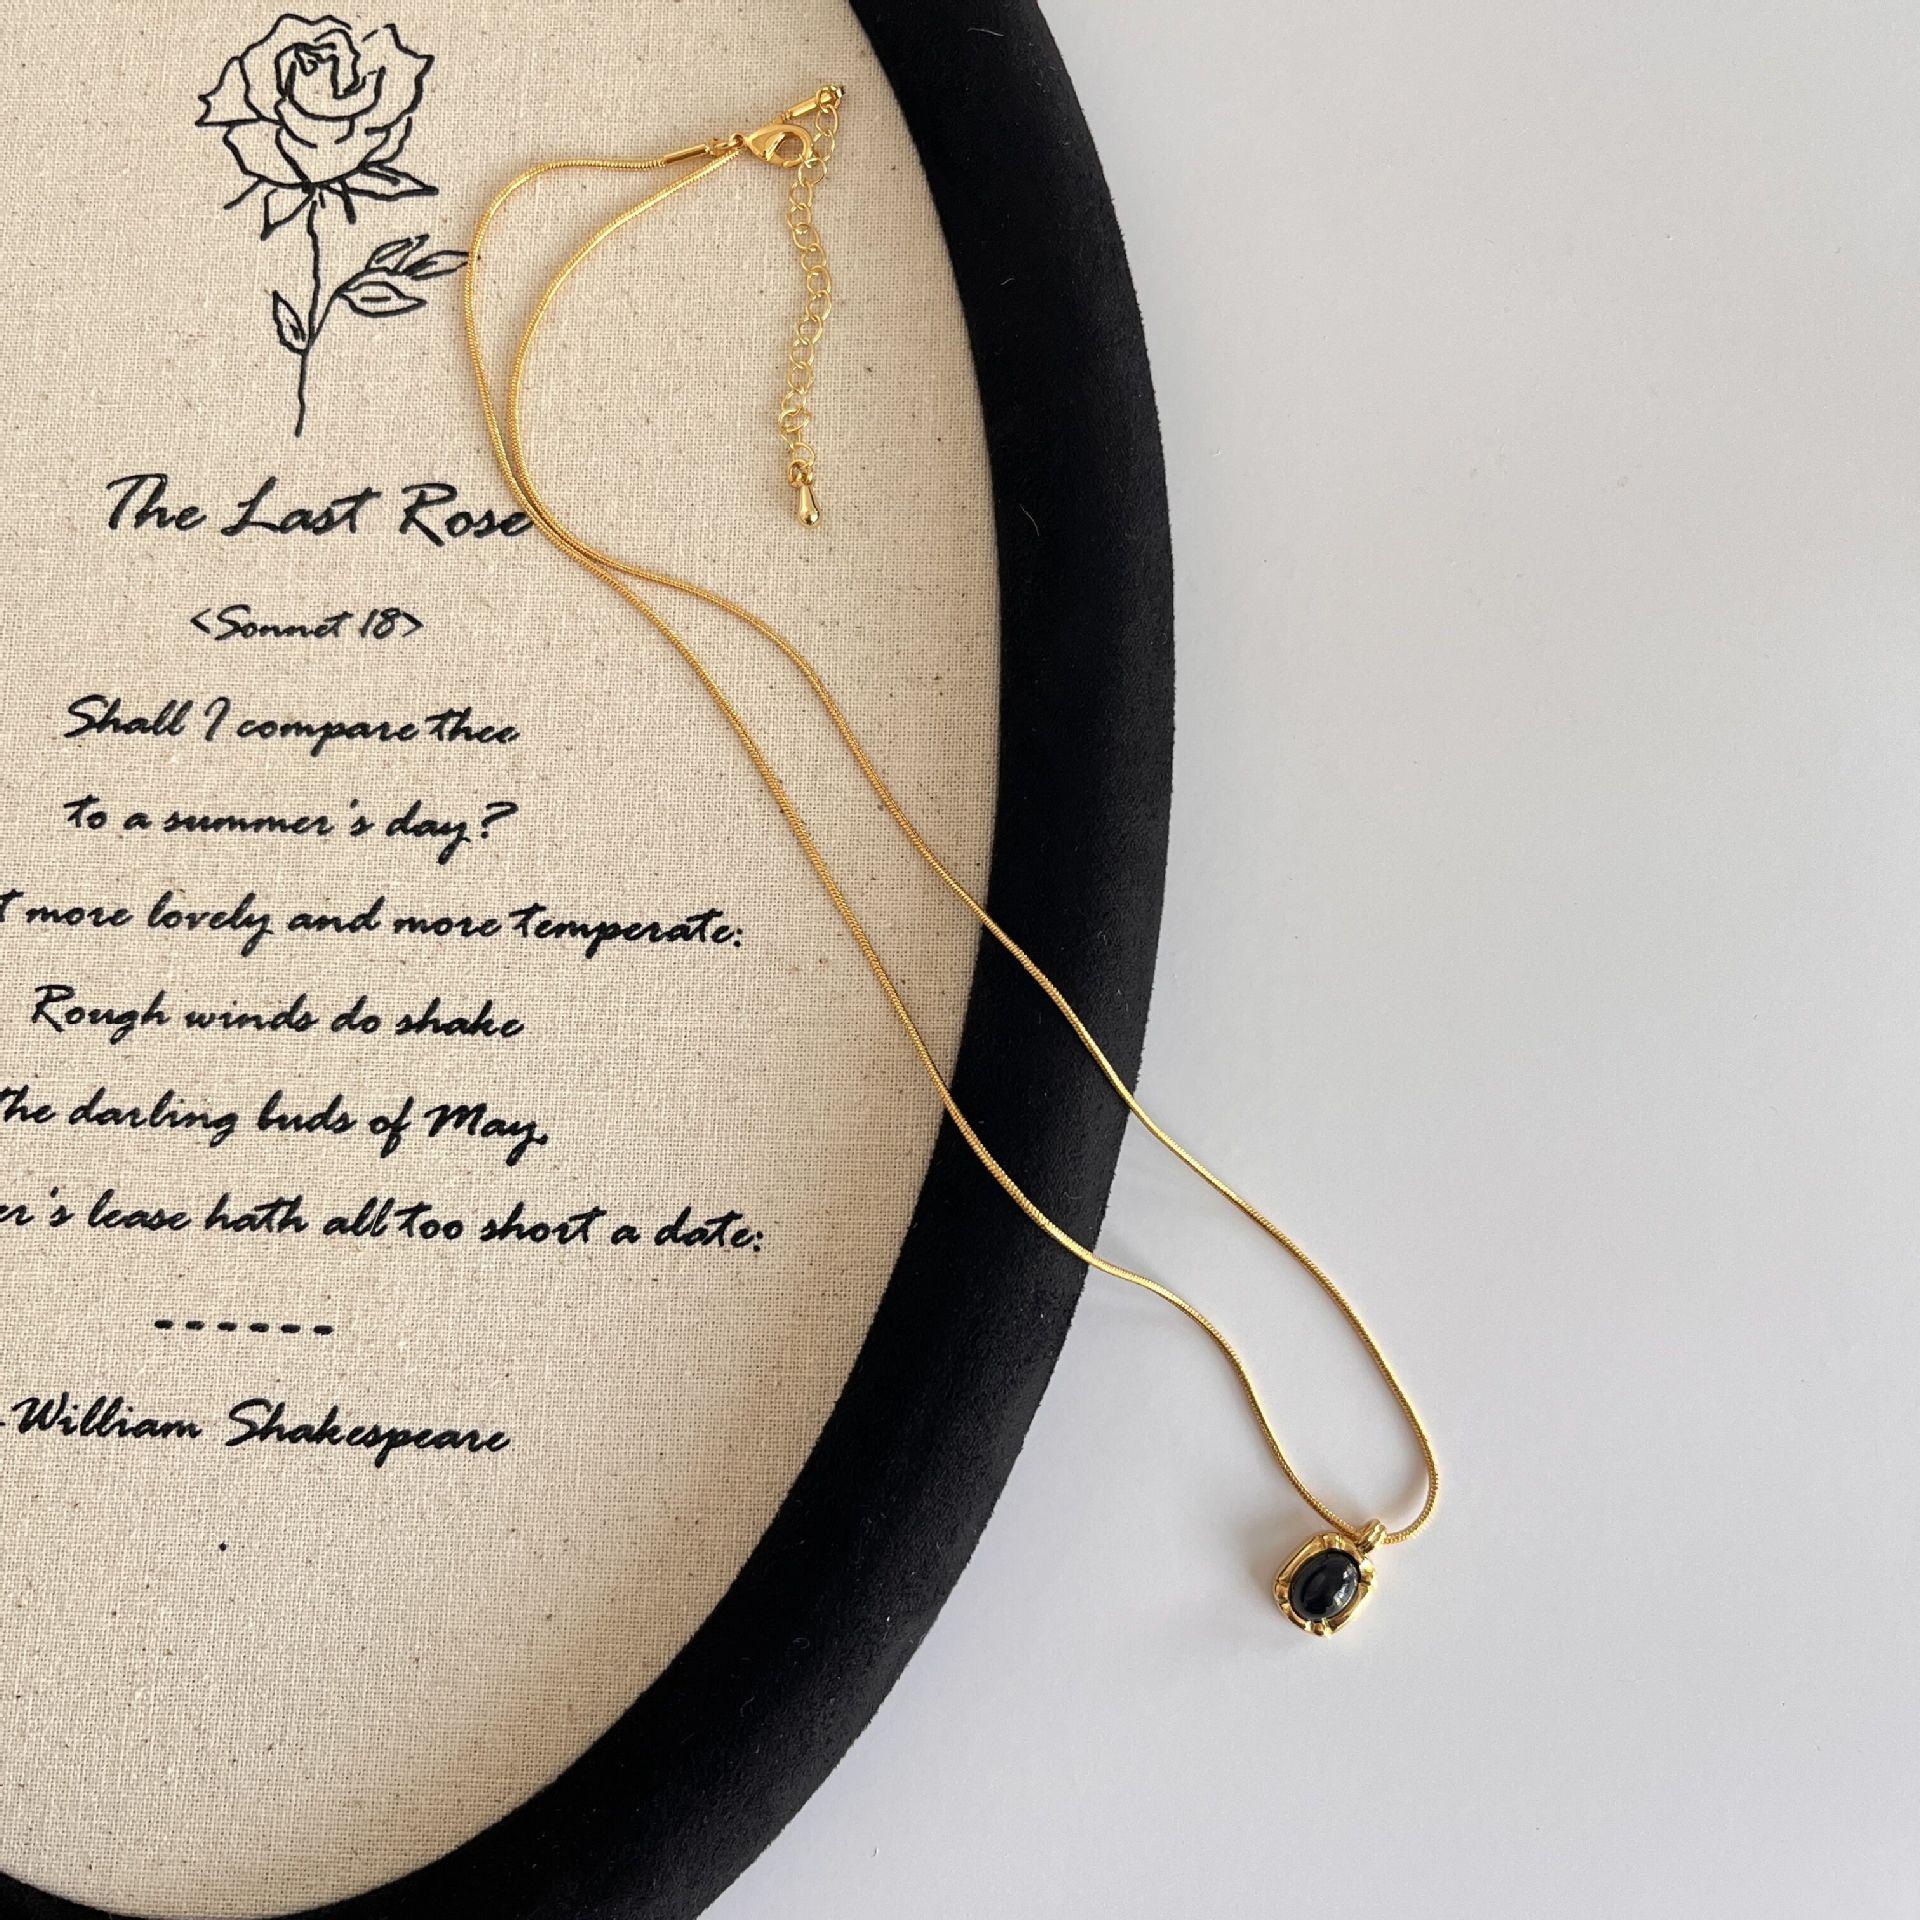 The Last Rose
<Sonnet 18>
Shall I compare thee
to a summer's day?
more lovely and more temperate:
Rough winds do shake
the darling buds of May,
lease hath all too short a date:
------
William Shakespeare